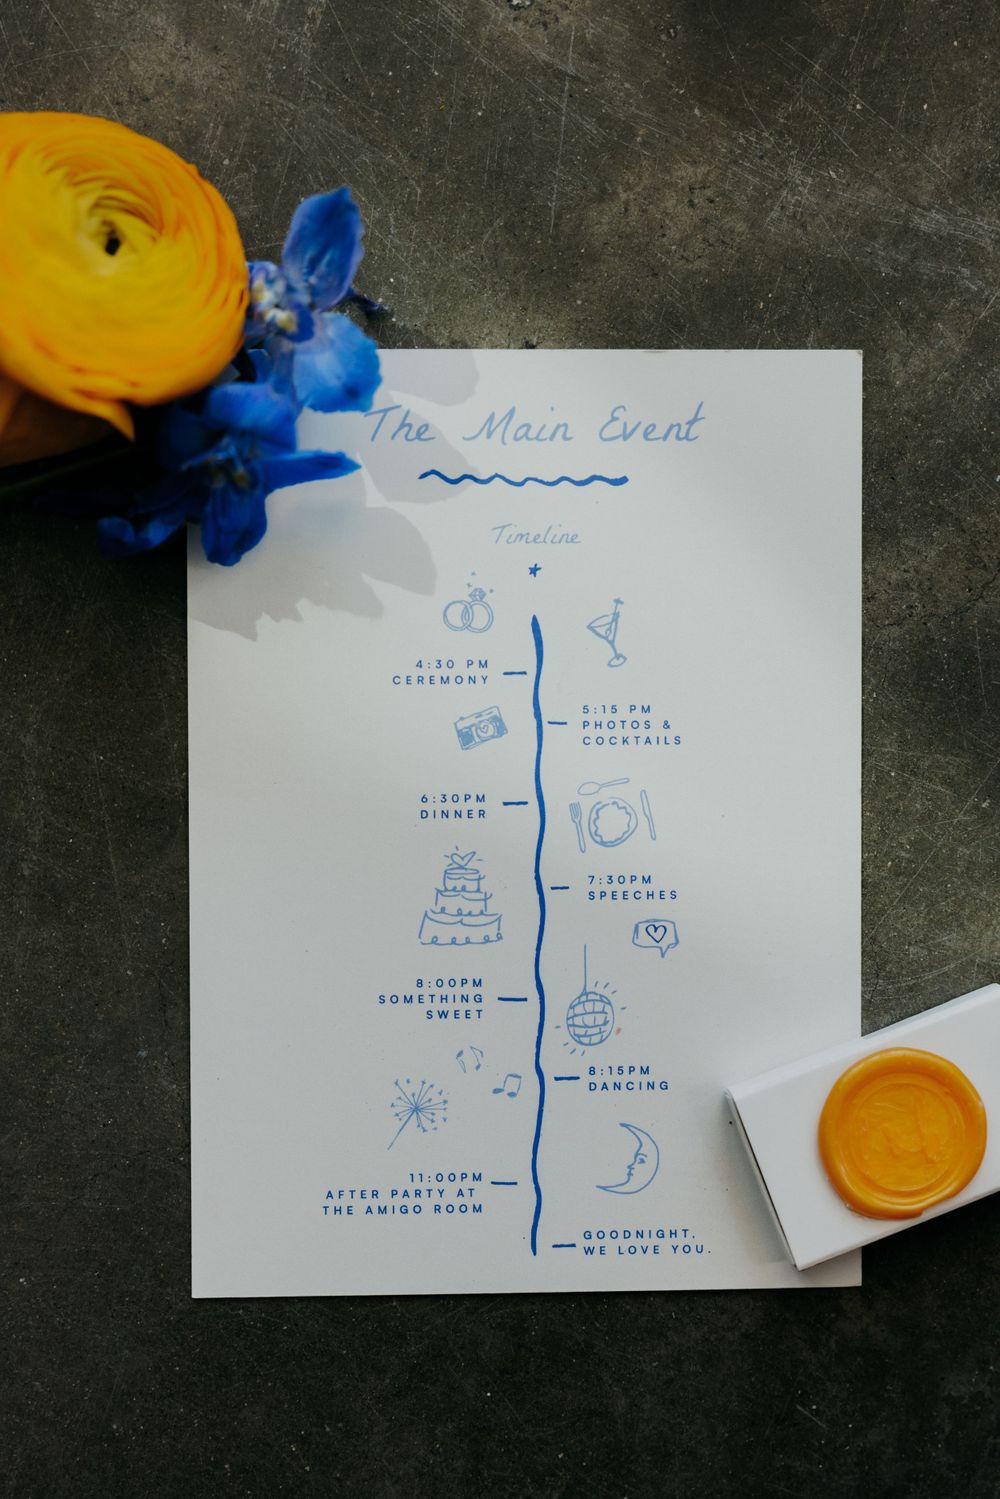 The Main Event
Timeline
4:30 PM
CEREMONY
5:15 PM
PHOTOS &
COCKTAILS
6:30PM
DINNER
7:30PM
SPEECHES
8:00PM
SOMETHING
SWEET
8:15PM
DANCING
11:00PM
AFTER PARTY AT
THE AMIGO ROOM
GOODNIGHT,
WE LOVE YOU.